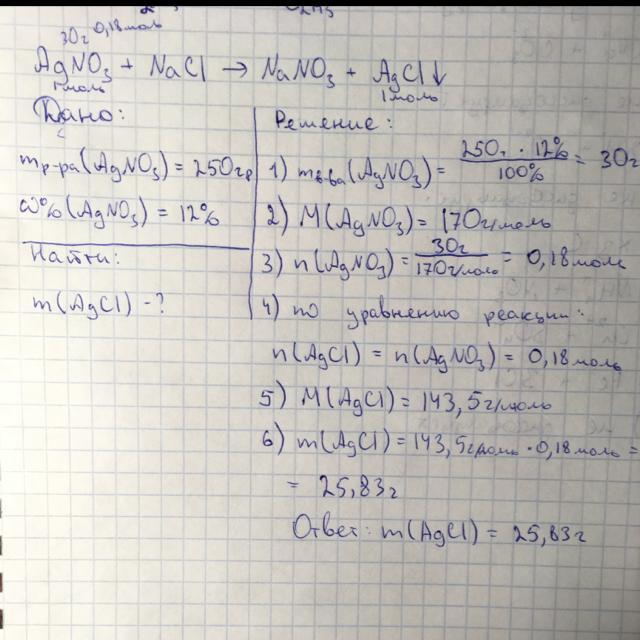 C₂H₅
30г 0,18моль
AgNO₃ + NaCl → NaNO₃ + AgCl↓
1моль 1моль
Дано:
mр-ра(AgNO₃) = 250гр
ω%(AgNO₃) = 12%
Найти:
m(AgCl) - ?
Решение:
1) mв-ва(AgNO₃) = 250г · 12% / 100% = 30г
2) M(AgNO₃) = 170г/моль
3) n(AgNO₃) = 30г / 170г/моль = 0,18моль
4) по уравнению реакции:
n(AgCl) = n(AgNO₃) = 0,18моль
5) M(AgCl) = 143,5г/моль
6) m(AgCl) = 143,5г/моль · 0,18моль =
= 25,83г
Ответ: m(AgCl) = 25,83г